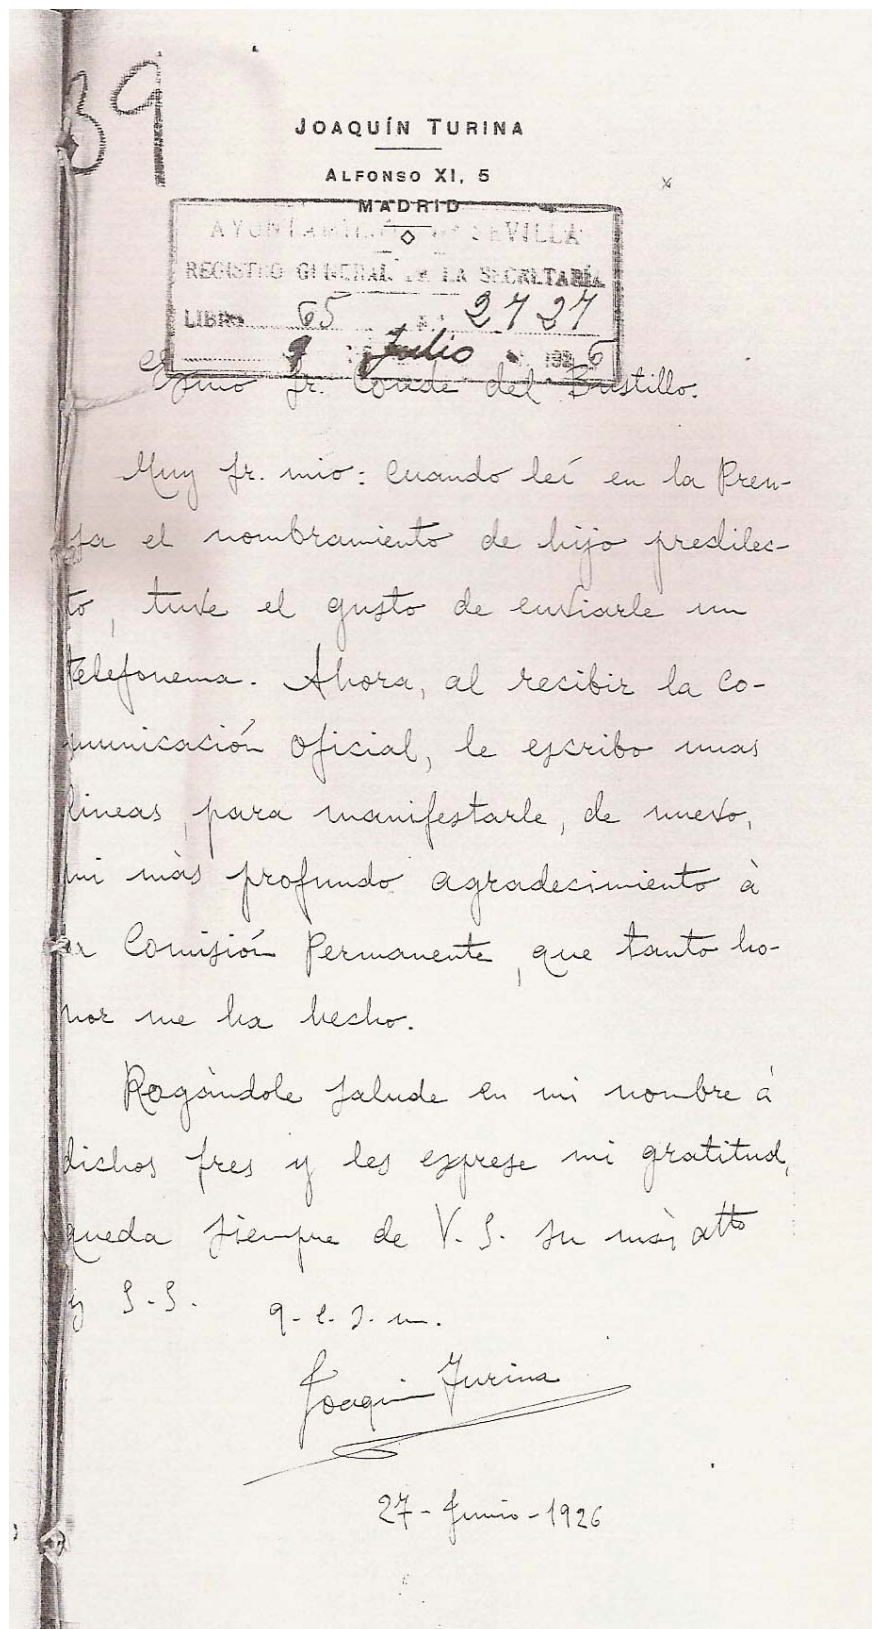 39
JOAQUÍN TURINA
ALFONSO XI, 5
MADRID
AYUNTAMIENTO DE SEVILLA
REGISTRO GENERAL DE LA SECRETARÍA
LIBRO 65 2727
9 Julio 1926
Exmo Sr. Conde del Bustillo.
Muy Sr. mio: Cuando leí en la Pren-
sa el nombramiento de hijo predilec-
to, tuve el gusto de enviarle un
telefonema. Ahora, al recibir la co-
municación oficial, le escribo unas
lineas, para manifestarle, de nuevo,
mi màs profundo agradecimiento à
la Comisión Permanente, que tanto ho-
nor me ha hecho.
Rogàndole salude en mi nombre à
dichos Sres y les exprese mi gratitud,
queda siempre de V. S. su màs atto
y S. S. q. e. s. m.
Joaquin Turina
27-Junio-1926